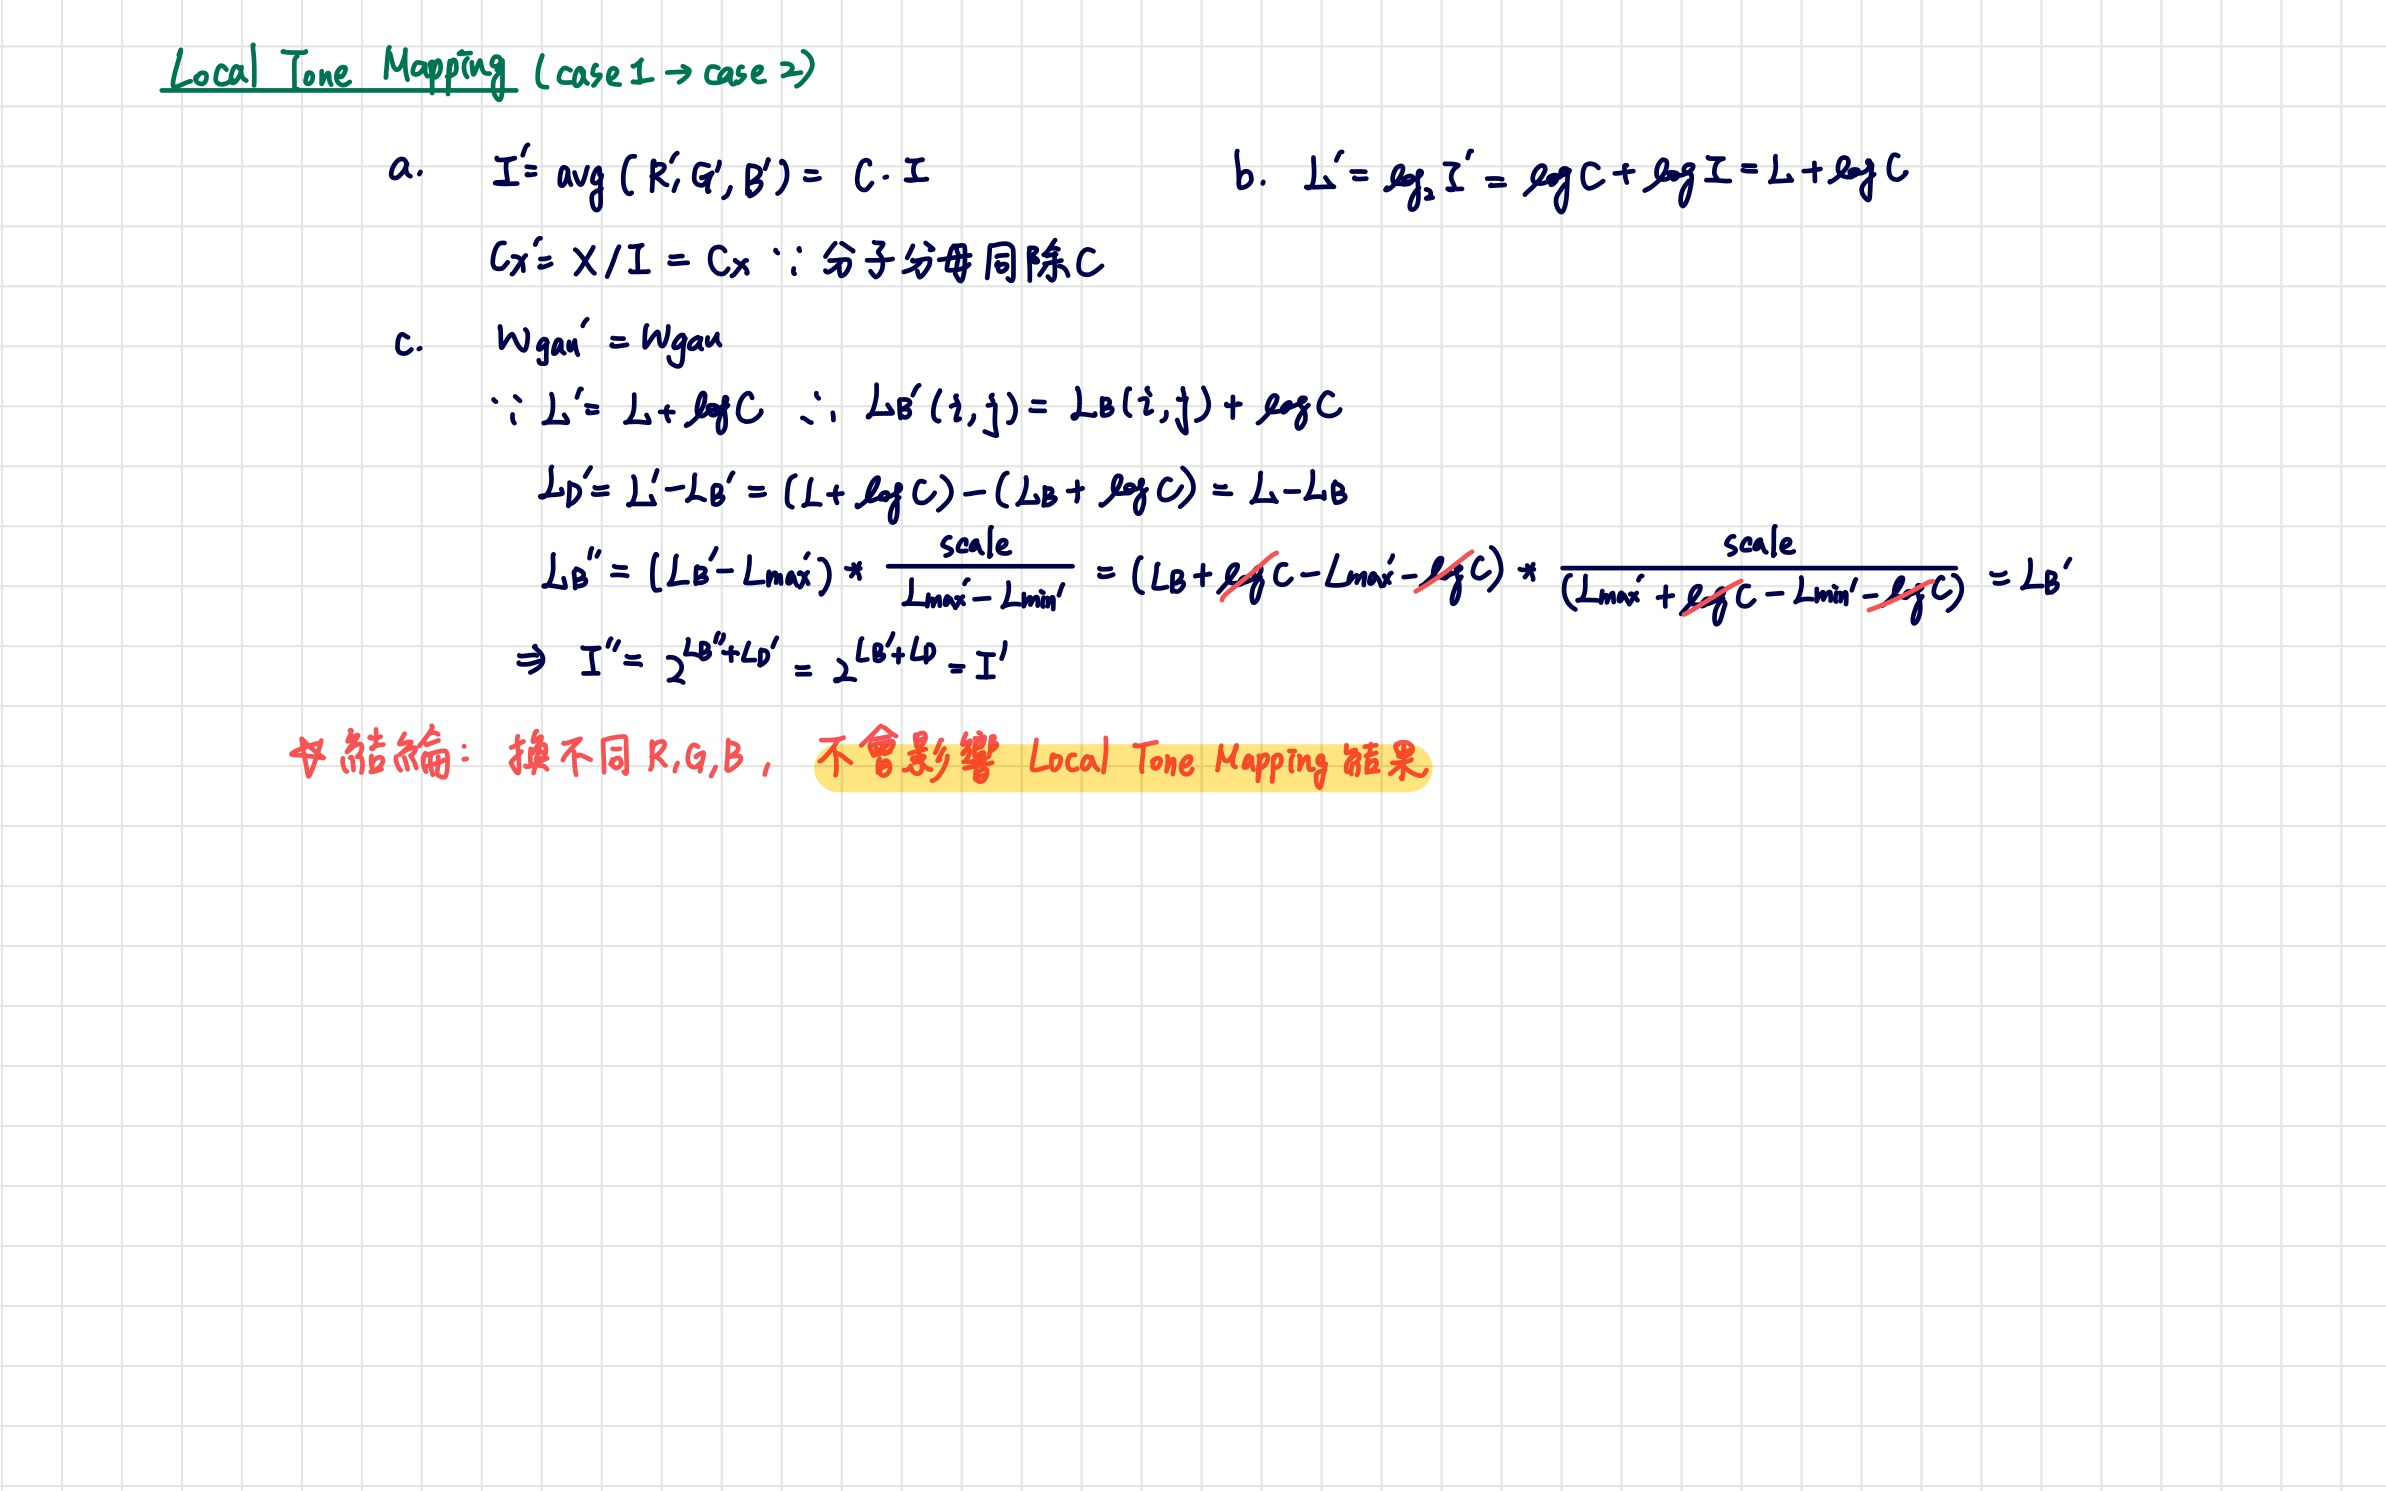 Local Tone Mapping (case 1 → case 2)
a. I' = avg (R', G', B') = C · I
b. L' = log₂ I' = log C + log I = L + log C
Cx' = X / I = Cx ∵ 分子分母同除 C
c. Wgau' = Wgau
∵ L' = L + log C ∴ LB'(i,j) = LB(i,j) + log C
LD' = L' - LB' = (L + log C) - (LB + log C) = L - LB
LB'' = (LB' - Lmax') * scale / (Lmax' - Lmin') = (LB + log C - Lmax' - log C) * scale / (Lmax' + log C - Lmin' - log C) = LB'
⇒ I'' = 2^(LB'' + LD') = 2^(LB' + LD) = I'
☆ 結論: 換不同 R, G, B, 不會影響 Local Tone Mapping 結果